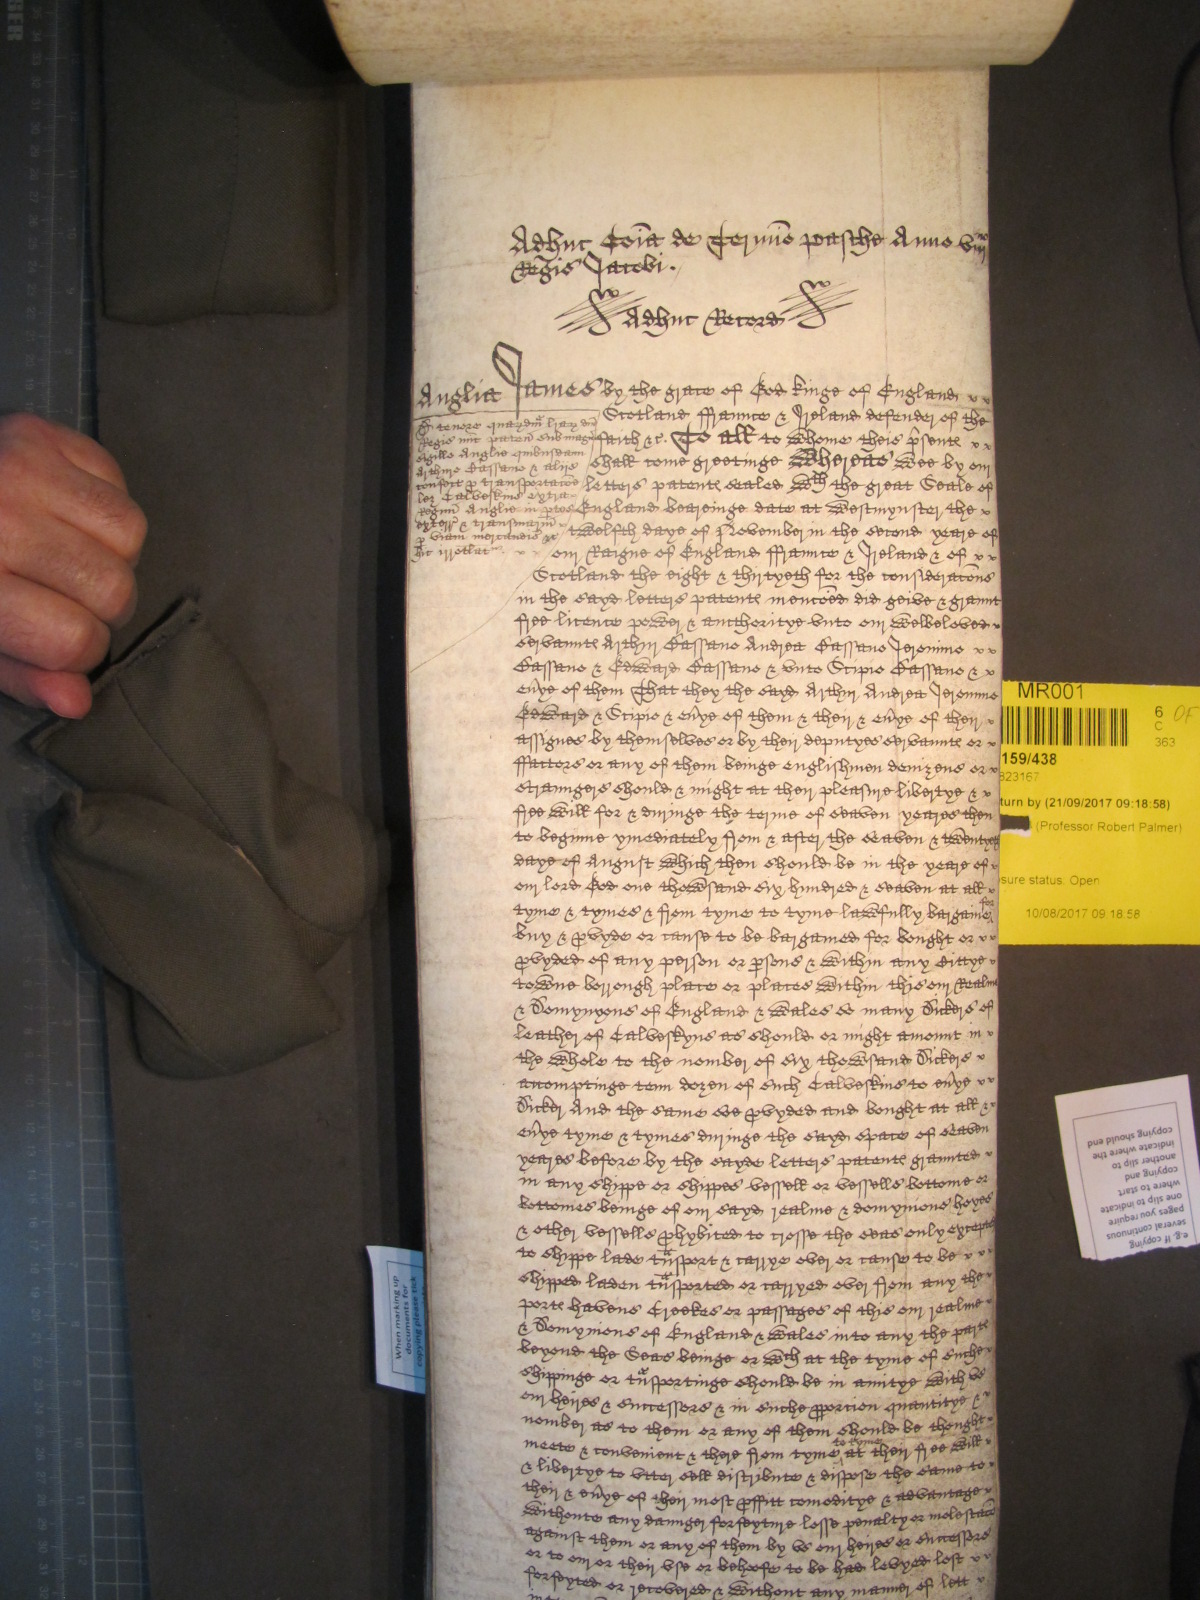 Adhuc Coia de Termio pasche Anno viijno
Regis Jacobi.
Adhuc Record
Anglia
James by the grace of God kinge of England
Scotland ffrannce & Ireland defender of the
faith &c. To all to whome theis pñte
shall come greetinge Whereas wee by our
letters patente sealed wth the great Seale of
England bearinge date at westmynster the
twelfth daye of November in the second yeare of
our Raigne of England ffrannce & Ireland & of
Scotland the eight & thirtyeth for the consideracōns
in the sayd letters patente mencōed did geive & graunt
free licence power & aucthoritye vnto our welbeloved
servannte Arthur Bassano Andrea Bassano Jeronimo
Bassano & Edward Bassano & vnto Scipio Bassano &
euye of them That they the sayd Arthur Andrea Jeronimo
Edward & Scipio & euye of them & their & euye of their
assignes by themselves or by their deputyes servannte or
ffactors or any of them beinge englishmen denizens or
strangers should & might at their pleasure libertye &
free will for & duringe the terme of seaven yeares then
to beginne ymediately from & after the seaven & twentyeth
daye of August which then should be in the yeare of
our lord God one thowsand six hundred & seaven at all
tyme & tymes & from tyme to tyme lawfully bargaine for
buy & pvyde or cause to be bargained for bought or
pvyded of any person or psons & within any Cittye
towne borrough place or places within this our Realme
& Domynyons of England & wales so many Dickers of
leather of Calveskyns as should or might amount in
the whole to the nomber of six thowsand Dickers
accomptinge tenn dozen of such Calveskins to euye
Dicker And the same soe pvyded and bought at all &
euye tyme & tymes duringe the sayd space of seaven
yeares before by the sayde letters patente graunted
in any shippe or shippes vessell or vessells bottome or
bottomes beinge of our sayd realme & domynions hoyes
& other vessells phybited to crosse the seas only excepted
to shippe lade tansport & carrye over or cause to be
shipped laden tansported or carryed over from any the
porte havens Creekes or passages of this our realme
& Domynions of England & wales into any the parte
beyond the Seas beinge or wch at the tyme of suche
shippinge or tansportinge should be in amitye with vs
our heires & successors & in suche pporcion quantitye &
nomber as to them or any of them should be thought
meete & convenient & there from tyme to tyme at their free will
& libertye to vtter sell distribute & dispose the same to
their & euye of their most pffitt comoditye & advantage
withoute any daunger forfeyture losse penalty or molestacōn
against them or any of them by vs our heires or successors
or to our or their vse or behoofe to be had levyed lost
forfeyted or recovered & without any manner of lett
MR001
6 OF
C
363
159/438
823167
turn by (21/09/2017 09:18:58)
(Professor Robert Palmer)
sure status: Open
10/08/2017 09:18:58
e.g. If copying
several continuous
pages you require
one slip to indicate
where to start
and
another slip to
indicate where the
copying should end
When marking up
documents for
copying please tick